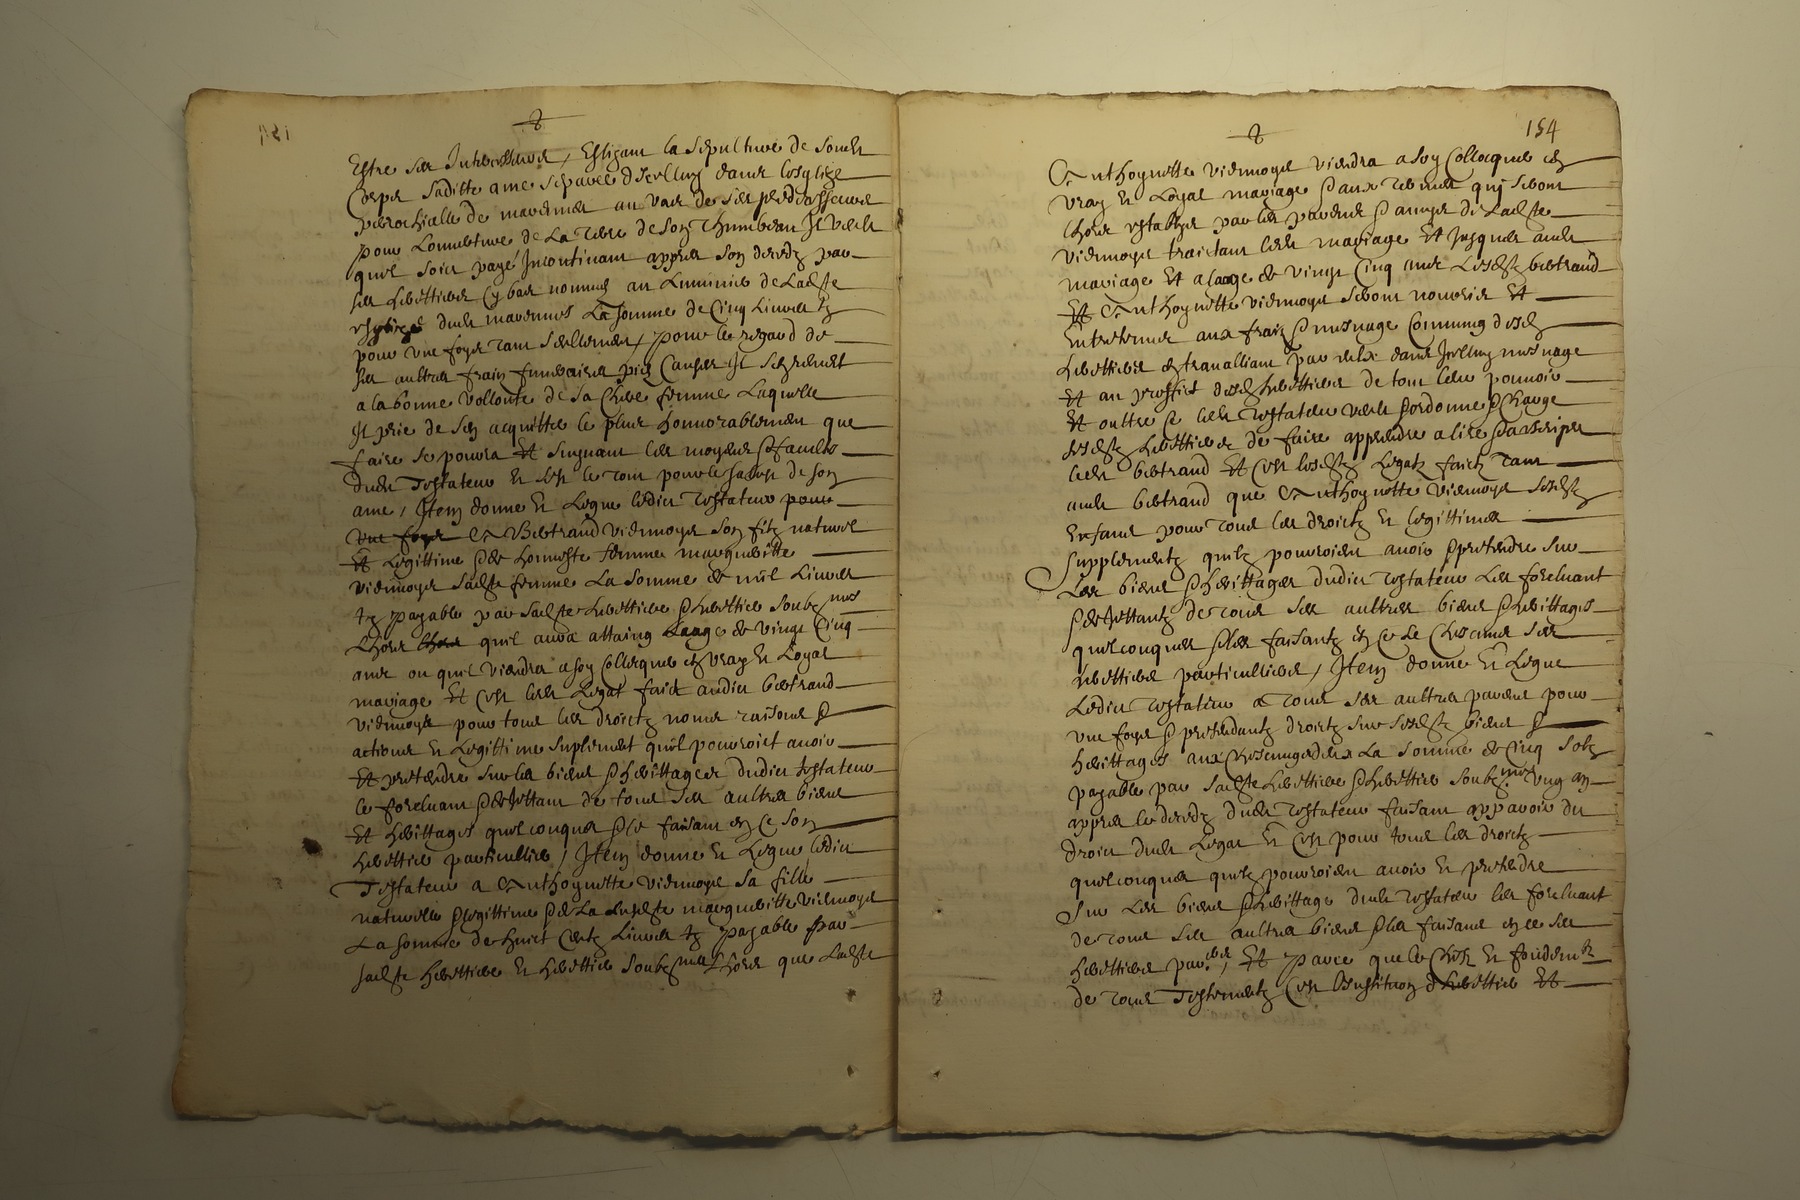 Estre ses Intercesseurs, Eslizant la sepulture de sondt
Corps saditte ame separée d'Icelluy dans l'esglize
parrochialle de au vase de ses predecesseurs
pour l'ouverture de la terre de son thumbeau Il veult
quil soict payé Incontinant appres son decedz par
ses herettiers cy bas nommés au Luminier de Ladte
esglize dudt la somme de Cinq Livres tz
pour une foys tant seullement, pour le regard de
ses aultres fraiz funeraires piez Causes Il se remect
a la bonne vollonté de sa Chere femme Laquelle
Il prie de sen acquitter le plus honnorablement que
faire se pourra Et suyvant les moyens & facultes
dudt Testateur Et cest le tout pour le salut de son
ame, Item donne Et Legue ledict testateur pour
une foys A Bertrand Viermoys son filz naturel
Et Legittime & de honneste femme margueritte
Viermoys sadte femme La somme de mil Livres
tz payable par sadte herettiere & herettier soubz nes
Lhors quil aura attaing Laage de vingt Cinq
ans ou quil viendra a soy collocquer en vray Et Loyal
mariage Et cest ledt Legat faict audict bertrand
Viermoys pour tous ses droictz noms raisons &
actions Et Legittime suplement quil pourroict avoir
Et pretendre sur les biens & herittages dudict testateur
le forcluant & dejettant de tous ses aultres biens
Et herittages quelconques & le faisant en ce son
herettier particullier, Item donne Et Legue ledict
Testateur a Anthoynette Viermoys sa fille
naturelle & legittime & de La susdte margueritte Viermoys
La somme de huict Centz Livres tz payable par
sadte herettiere Et herettier soubz nes Lhors que Ladte
154
Anthoynette Viermoys viendra a soy Collocquer en
vray Et Loyal mariage & aux termes quj seront
lhors establys par les parens & amys de Ladte
Viermoys traictant ledt mariage Et Jusques audt
mariage Et a laage de vingt Cinq ans Lesdtz bertrand
Et Anthoynette Viermoys seront nourris Et
Entretenus aux fraiz & mesnage Commung desdtz
herettiers en travalliant par eulx dans Icelluy mesnage
Et au proffict desdtz herettiers de tout leur pouvoir
Et oultre ce ledt testateur veult & ordonne & charge
sesdtz herettiers de faire apprendre a lire & a escripre
ledt bertrand Et cest lesdtz Legatz faictz tant
audt bertrand que Anthoynette Viermoys sesdtz
Enfans pour tous ses droictz Et legittimes
supplementz quilz pourroient avoir & pretendre sur
Les biens & herittages dudict testateur Les forcluant
& dejettantz de tous ses aultres biens & herittages
quelconques & les faisantz en ce Le chescuns ses
herettiers particulliers, Item donne Et Legue
Ledict testateur a tous ses aultres parens pour
une foys & pretendantz droictz sur sesdtz biens &
herittages aux chescungs deux La somme de Cinq solz
payable par sadte herettiere & herettier soubz nes ung an
appres le decedz dudt testateur faisant apparoir du
droict dudt Legat Et cest pour tous les droictz
quelconques quilz pourroient avoir Et pretendre
Sur Les biens & herittage dudt testateur les forcluant
de tous ses aultres biens & les faisant en ce ses
herettiers par.ers, Et parce que le Chefz Et fondement
de tous Testementz Cest L'Institution d'herettier Et